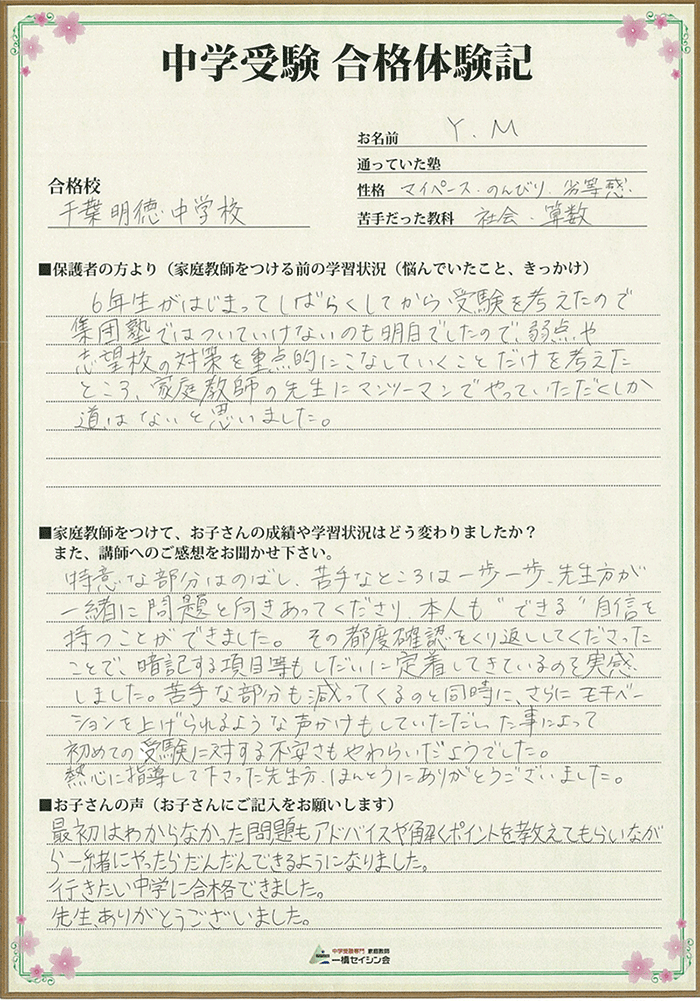 中学受験 合格体験記
お名前 Y.M
通っていた塾
合格校
性格 マイペース・のんびり・劣等感・
千葉明徳中学校
苦手だった教科 社会・算数
■保護者の方より（家庭教師をつける前の学習状況（悩んでいたこと、きっかけ）
6年生がはじまってしばらくしてから受験を考えたので
集団塾ではついていけないのも明白でしたので、弱点や
志望校の対策を重点的にこなしていくことだけを考えた
ところ、家庭教師の先生にマンツーマンでやっていただくしか
道はないと思いました。
■家庭教師をつけて、お子さんの成績や学習状況はどう変わりましたか？
また、講師へのご感想をお聞かせ下さい。
特意な部分はのばし、苦手なところは一歩一歩、先生方が
一緒に問題と向きあってくださり、本人も“できる”自信を
持つことができました。 その都度確認をくり返ししてくださった
ことで、暗記する項目等もしだいに定着してきているのを実感
しました。苦手な部分も減ってくるのと同時に、さらにモチベー
ションを上げられるような声かけもしていただいた事によって
初めての受験に対する不安さもやわらいだようでした。
熱心に指導して下さった先生方、ほんとうにありがとうございました。
■お子さんの声（お子さんにご記入をお願いします）
最初はわからなかった問題もアドバイスや解くポイントを教えてもらいなが
ら一緒にやったらだんだんできるようになりました。
行きたい中学に合格できました。
先生、ありがとうございました。
中学受験専門 家庭教師
一橋セイシン会